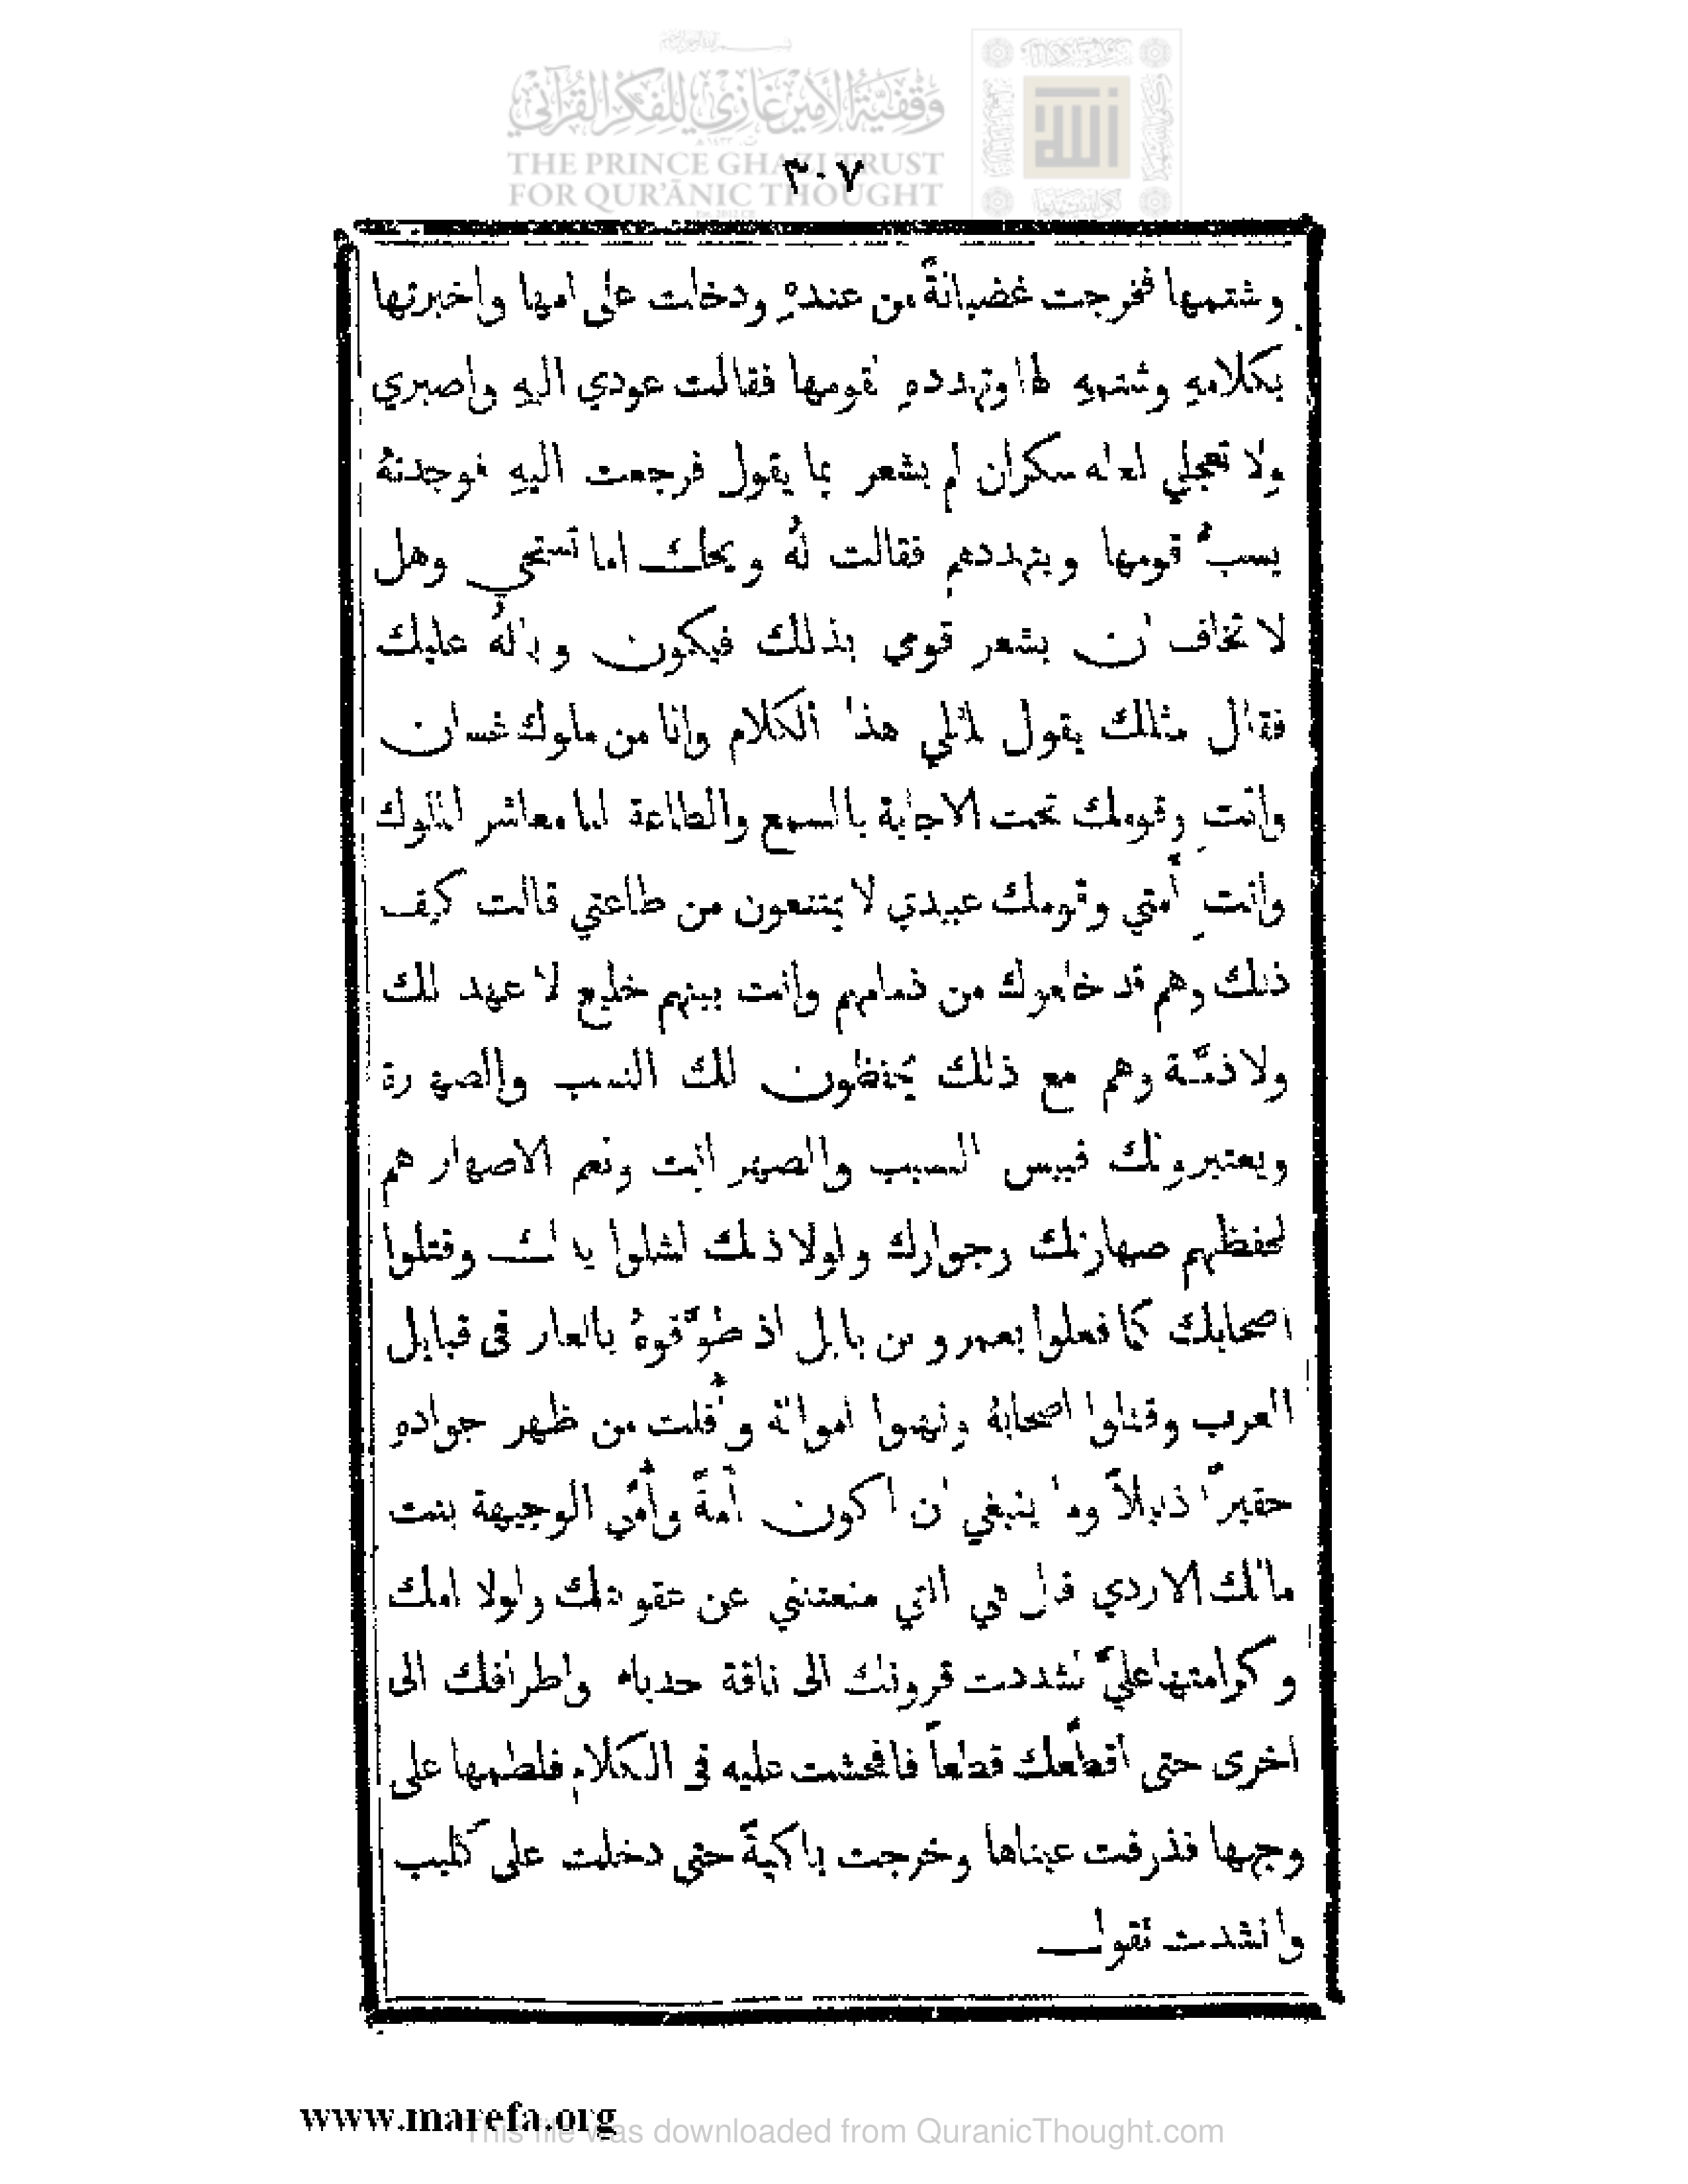 وقفية الأمير غازي للفكر القرآني
THE PRINCE GHAZI TRUST
FOR QUR'ĀNIC THOUGHT
٣٠٧
وشتمها فخرجت غضبانةً من عندهِ ودخلت على امها واخبرتها
بكلامهِ وشتمهِ لها وتهددهِ لقومها فقالت عودي اليهِ واصبري
ولا تعجلي لعله سكران لم يشعر بما يقول فرجعت اليهِ فوجدتهُ
يسبُّ قومها ويتهددهم فقالت لهُ ويحك اما تستحي وهل
لا تخاف ان يشعر قومي بذلك فيكون وبالهُ عليك
فقال مثلك يقول لمثلي هذا الكلام وانا من ملوك غسان
وانتِ وقومك تحت الاجابة بالسمع والطاعة لنا معاشر الملوك
وانتِ أَمتي وقومك عبيدي لا يمتنعون من طاعتي قالت كيف
ذلك وهم قد خلعوك من ذمامهم وانت بينهم خليع لا عهد لك
ولا ذمَّة وهم مع ذلك يحفظون لك النسب والصهارة
ويعتبرونك فبيس النسيب والصهر انت ونعم الاصهار هم
لحفظهم صهارتك وجوارك ولولا ذلك لشلوا يا لك وقتلوا
اصحابك كما فعلوا بعمرو بن بابل اذ طوَّقوهُ بالعار في قبايل
العرب وقتلوا اصحابهُ ونهبوا اموالهُ وأُفلت من ظهر جوادهِ
حقيرًا ذليلاً وما ينبغي ان اكون أَمةً وأُمّي الوجيهة بنت
مالك الازدي قال هي التي منعتني عن عقوبتك ولولا امك
وكرامتها عليَّ لشددت قرونك الى ناقة حدباء واطرافك الى
اخرى حتى اقطّعك قطعاً فافحشت عليه في الكلام فلطمها على
وجهها فذرفت عيناها وخرجت باكيةً حتى دخلت على كليب
وانشدت تقول
www.marefa.org
This file was downloaded from QuranicThought.com